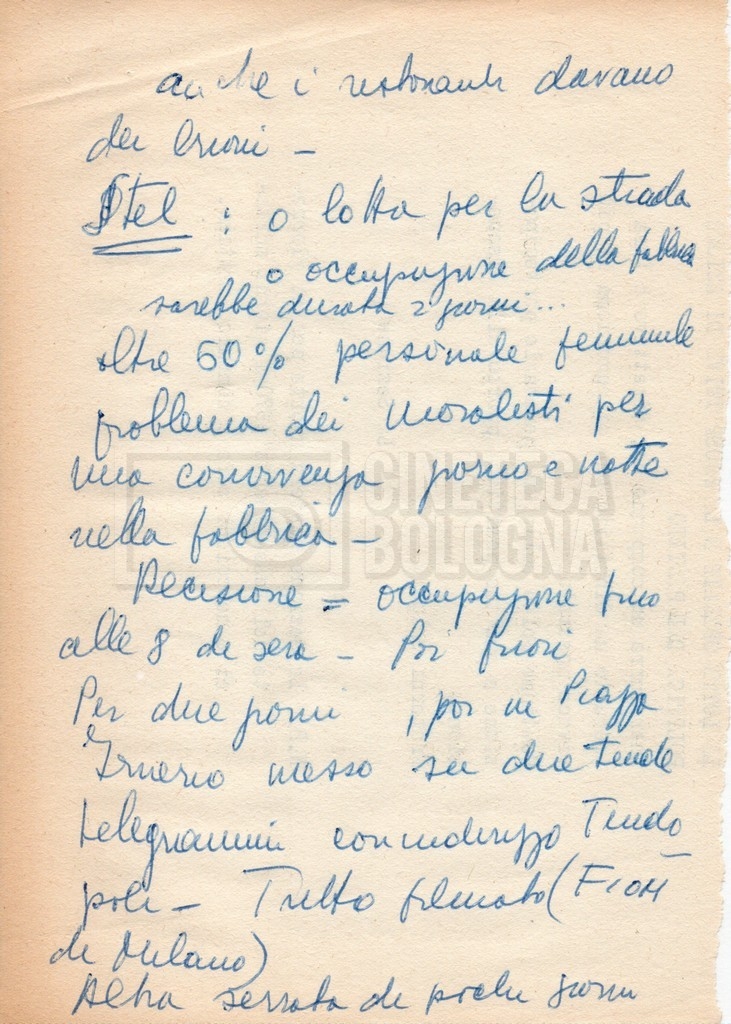 anche i ristoranti davano
dei buoni -
Stel : o lotta per la strada
o occupazione della fabbrica
sarebbe durata 2 giorni...
oltre 60% personale femminile
problema dei moralisti per
una convivenza giorno e notte
nella fabbrica -
Decisione = occupazione fino
alle 8 di sera - Poi fuori
Per due giorni , poi in Piazza
Irnerio messo su due tende
telegrammi con indirizzo Tendo
poli - Tutto filmato (FIOM
di Milano)
Altra serrata di pochi giorni
CINETECA
BOLOGNA